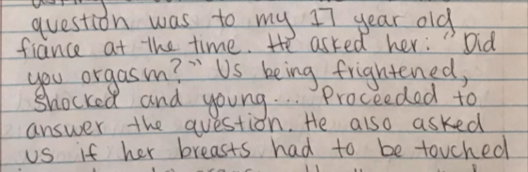 question was to my 17 year old
fiance at the time. He asked her: "Did
you orgasm?" Us being frightened,
shocked and young... Proceeded to
answer the question. He also asked
us if her breasts had to be touched